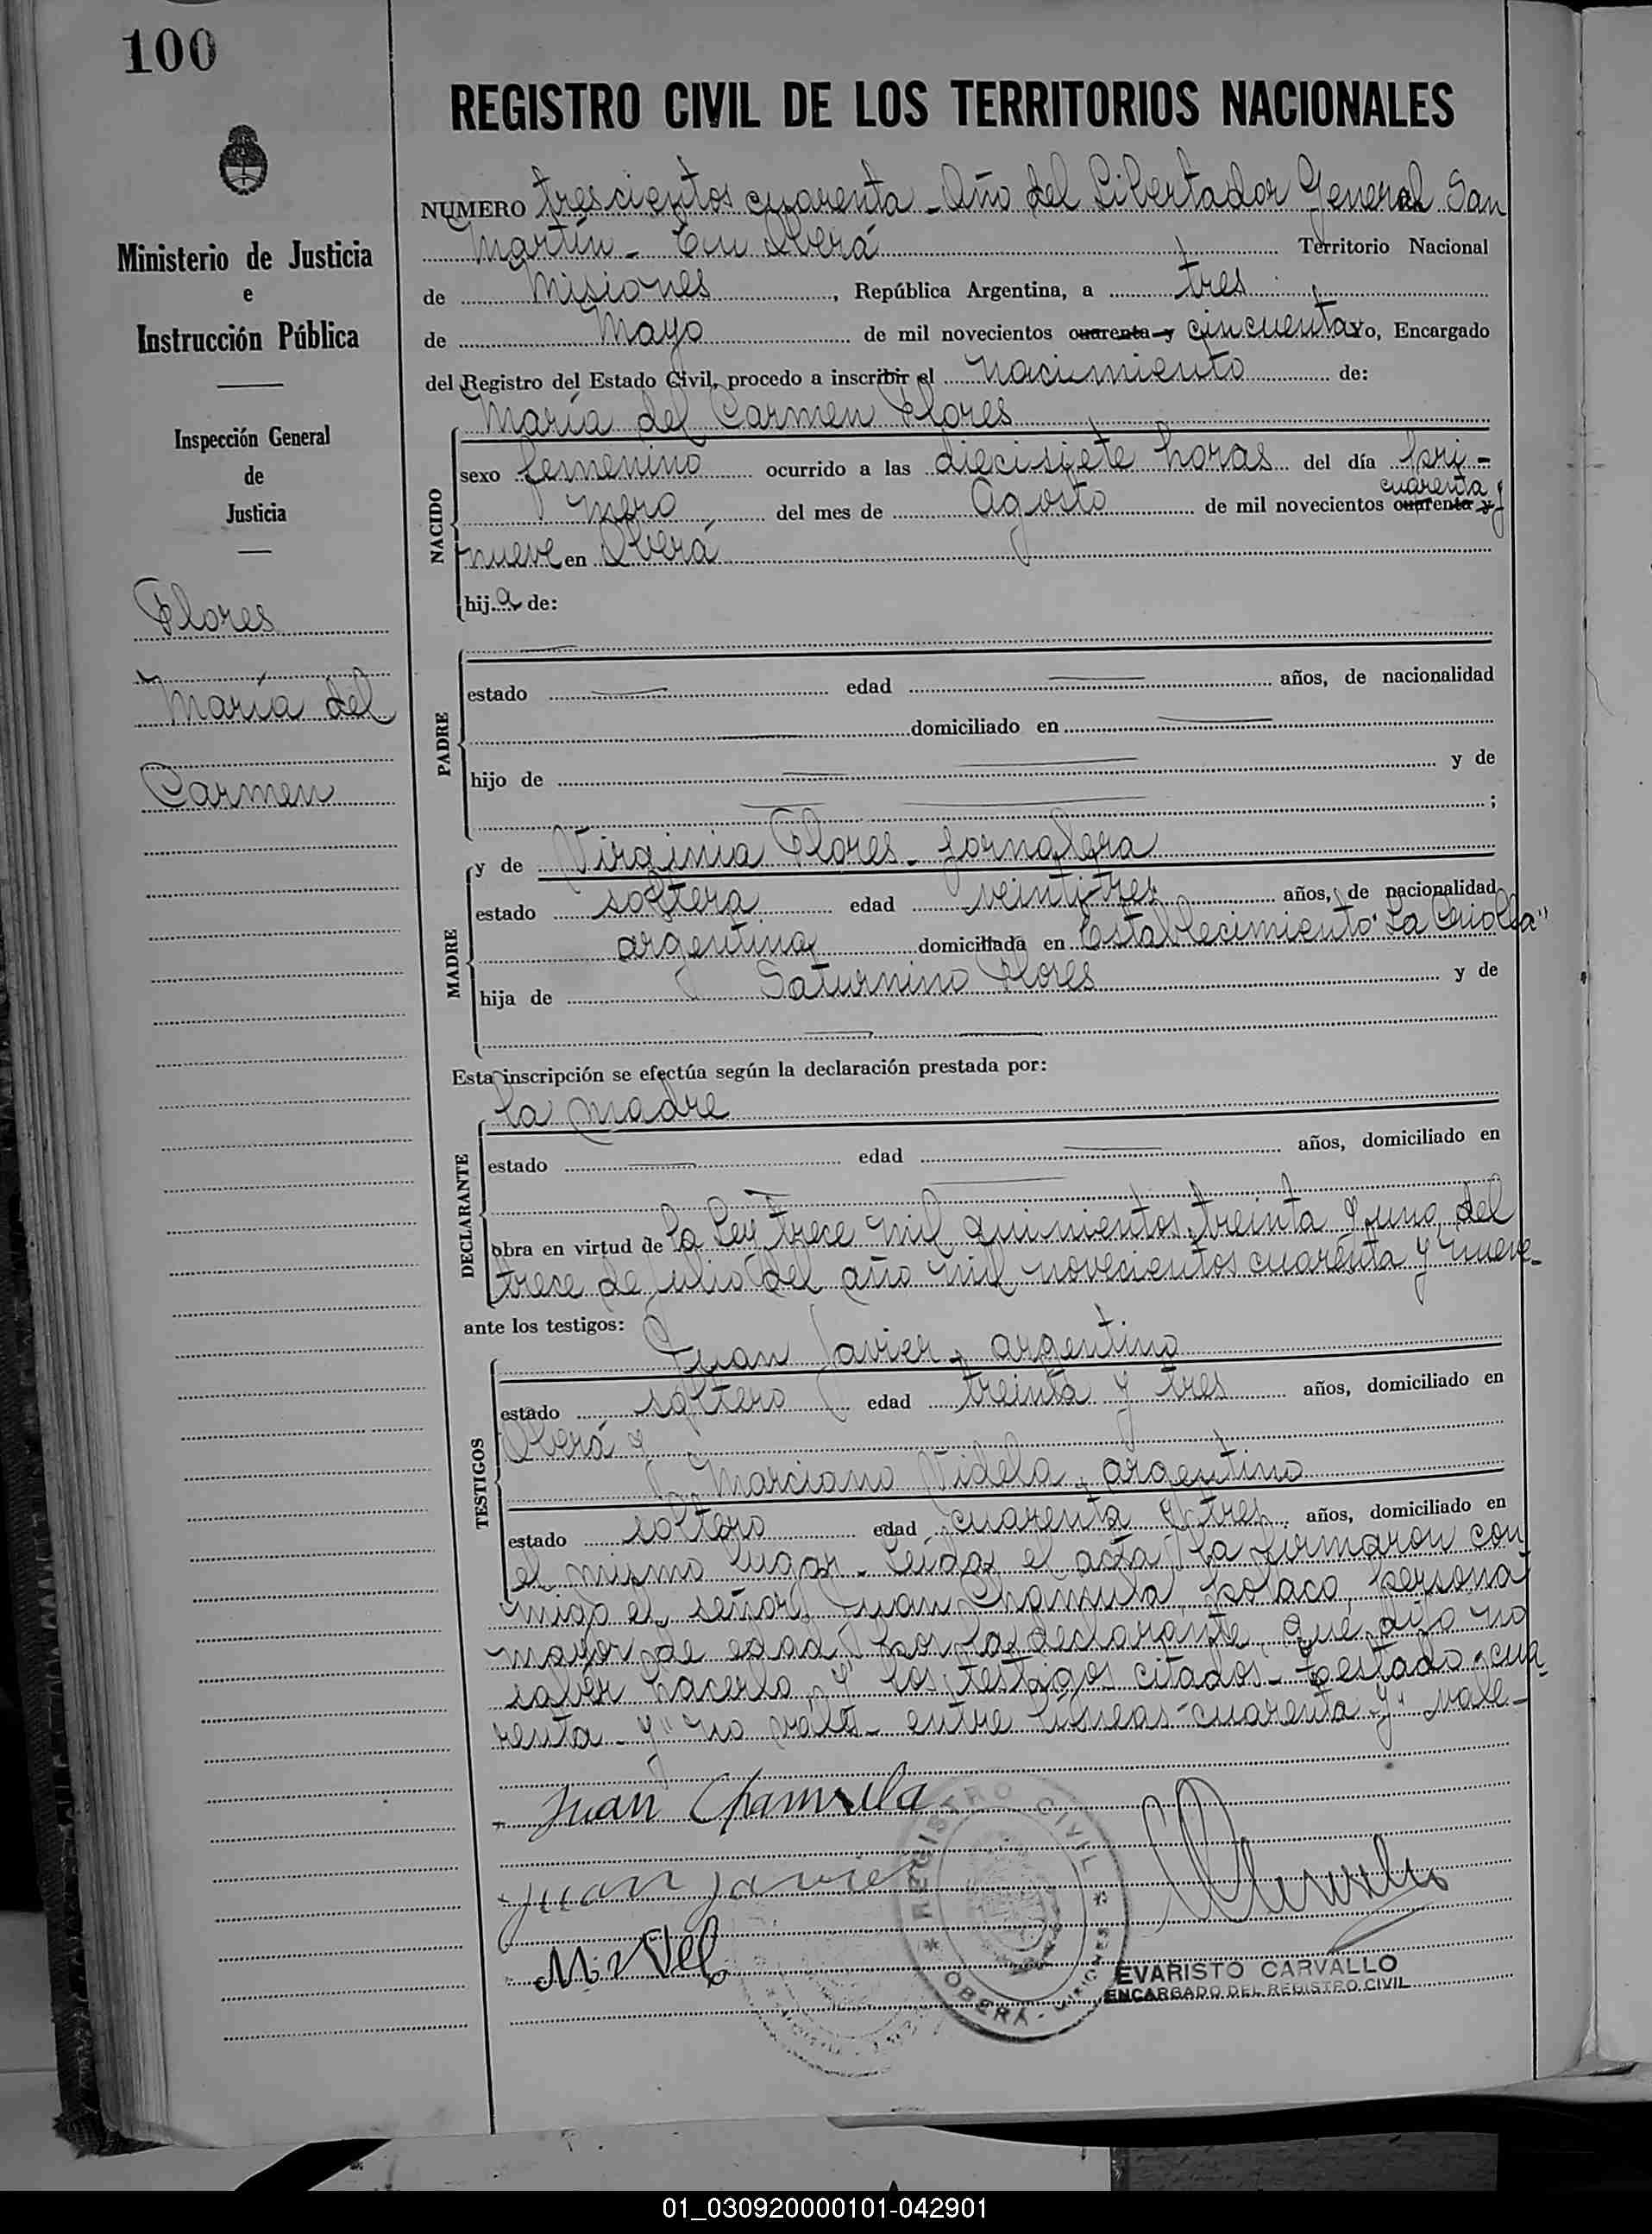 100
REGISTRO CIVIL DE LOS TERRITORIOS NACIONALES
Ministerio de Justicia
e
Instrucción Pública
Inspección General
de
Justicia
Flores
María del
Carmen
NUMERO trescientos cuarenta - Año del Libertador General San
Martín - En Oberá Territorio Nacional
de Misiones, República Argentina, a tres
de Mayo de mil novecientos cuarenta y cincuenta yo, Encargado
del Registro del Estado Civil, procedo a inscribir el nacimiento de:
María del Carmen Flores
NACIDO
sexo femenino ocurrido a las diecisiete horas del día pri-
cuarenta y
mero del mes de Agosto de mil novecientos cuarenta y
nueve en Oberá
hija de:
PADRE
estado edad años, de nacionalidad
domiciliado en
hijo de y de
;
MADRE
y de Virginia Flores - jornalera
estado soltera edad veintitres años, de nacionalidad
argentina domiciliada en Establecimiento "La Criolla"
hija de Saturnino Flores y de
Esta inscripción se efectúa según la declaración prestada por:
DECLARANTE
la madre
estado edad años, domiciliado en
obra en virtud de la Ley trece mil quinientos treinta y uno del
trece de julio del año mil novecientos cuarenta y nueve-
ante los testigos:
TESTIGOS
Juan Javier, argentino
estado soltero edad treinta y tres años, domiciliado en
Oberá y
Marciano Videla, argentino
estado soltero edad cuarenta y tres años, domiciliado en
el mismo lugar - Leída el acta la firmaron con
migo el señor Juan Chamula, polaco, persona
mayor de edad por la declarante, que dijo no
saber hacerlo y los testigos citados - testado "cua-
renta - y" no vale - entre líneas "cuarenta y" vale -
Juan Chamula
Juan Javier
REGISTRO CIVIL
OBERÁ - MISIONES
EVARISTO CARVALLO
ENCARGADO DEL REGISTRO CIVIL
01_030920000101-042901